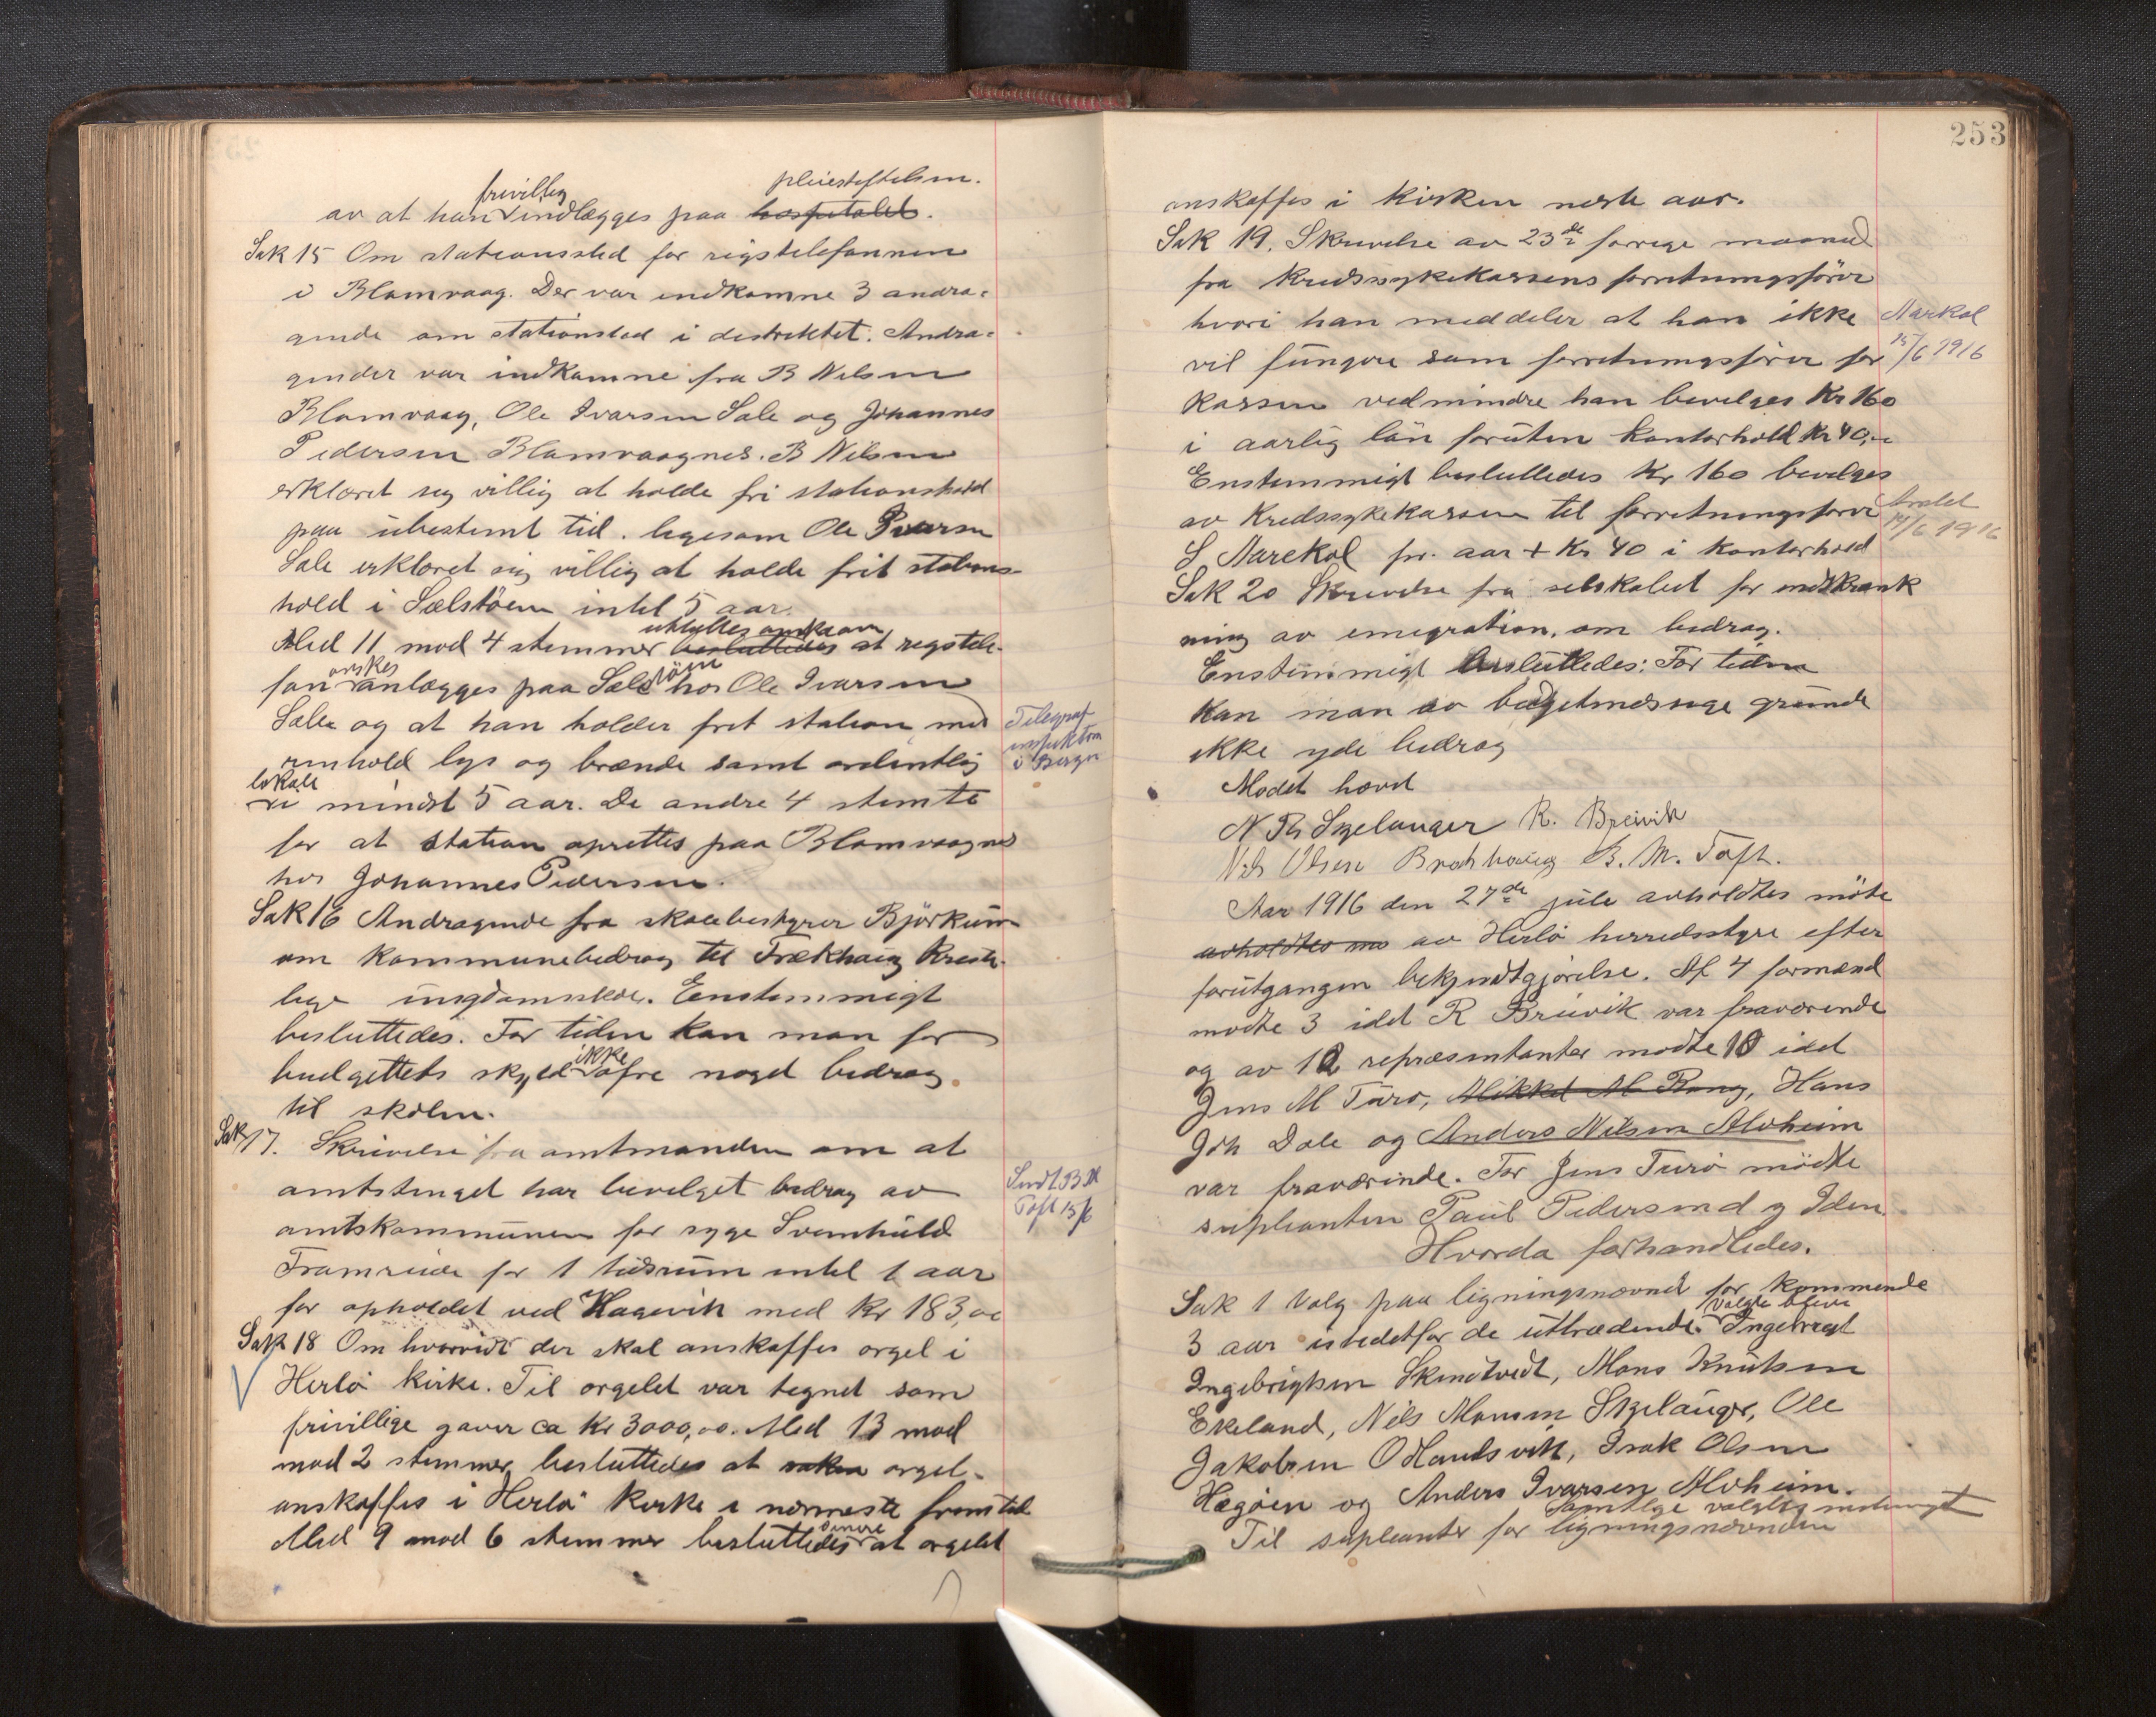 pleiestiftelsen.
frivillig
av at han indlægges paa hospitalet.
Sak 15 Om stationssted for rigstelefonnen
i Blomvaag. Der var indkomne 3 andra-
gende om stationsted i distriktet. Andra-
gender var indkomne fra B Nilsen
Blomvaag, Ole Ivarsen Sale og Johannes
Pedersen Blomvaagnes. B Nilsen
erklæret seg villig at holde fri stationshold
paa ubestemt tid. ligesom Ole Ivarsen
Sale erklæret sig villig at holde frit stations-
hold i Sælstöen intil 5 aar.
uttaltes önske om
Med 11 mod 4 stemmer besluttedes at rigstele-
ønskes
fon anlægges paa Sælstöen hos Ole Ivarsen
Sæle og at han holder frit station med
renhold lys og brænde samt ordentlig
lokale
i mindst 5 aar. De andre 4 stemte
for at station oprettes paa Blomvaagnes
hos Johannes Pedersen.
Telegraf
inspektøren
i Bergen
Sak 16 Andragende fra skolebestyrer Björkum
om kommunebedrag til Frekhaug Kriste-
lige ungdomsskole. Eenstemmigt
besluttedes. For tiden kan man for
budgettets skyld ikke ofre noget bedrag
til skolen.
Sak 17. Skrivelse fra amtmanden om at
amtstinget har bevilget bedrag av
amtskommunen for syge Svenhuld
Framreide for 1 tidsrum intil 1 aar
for opholdet ved Hagevik med Kr 183,00
Sendt B M
Toft 15/6
Sak 18 Om hvorvidt der skal anskaffes orgel i
Herlö kirke. Til orgelet var tegnet som
frivillige gaver ca Kr 3000,00. Med 13 mod
mod 2 stemmer besluttedes at orgel
anskaffes i Herlö kirke i nærmeste fremtid
senere
Med 9 mod 6 stemmer besluttedes at orgelet
253
anskaffes i kirken neste aar.
Sak 19. Skrivelse av 23de forrige maaned
fra kredssykekassens forretningsfører
hvori han meddeler at han ikke
vil fungere som forretningsfører for
kassen vedmindre han bevilges Kr 160
i aarlig lön foruten kontorhold Kr 40,-
Enstemmigt besluttedes Kr 160 bevilges
av Kredssykekassen til forretningsfører
S Aarekol pr. aar + Kr 40 i kontorhold
Aarkol
15/6 1916
1916
Sak 20 Skrivelse fra selskabet for indskrænk
ning av emigration, om bidrag.
Enstemmigt besluttedes: For tiden
kan man av budgetmessige grunde
ikke yde bedrag
Mødet hævet
N Th Skjelanger R. Breivik
Nils Olsen Bratshaug B. M. Toft.
Aar 1916 den 27de juli avholdtes møte
avholdtes mø av Herlö herredsstyre efter
forutgangen bekjendtgjörelse. Af 4 formænd
mødte 3 idet R Breivik var fraværende
og av 12 repræsentanter mødte 10 idet
Jens M Turö, Mikkel M Rong, Hans
Joh Dale og Anders Nilsen Alvheim
var fraværende. For Jens Turö mødte
supleanten Paul Pedersen d y Iden.
Hvorda forhandledes.
Sak 1 Valg paa ligningsnævnd for kommende
valgte bleve
3 aar istedetfor de uttrædende. Ingebregt
Ingebrigtsen Skindtvedt, Mons Knutsen
Ekeland, Nils Monsen Skjelanger, Ole
Jakobsen O Handsvik, Isak Olsen
Hægöien og Anders Ivarsen Alvheim.
Samtlige valgtes enstemmigt
Til supleanter for ligningsnævnden